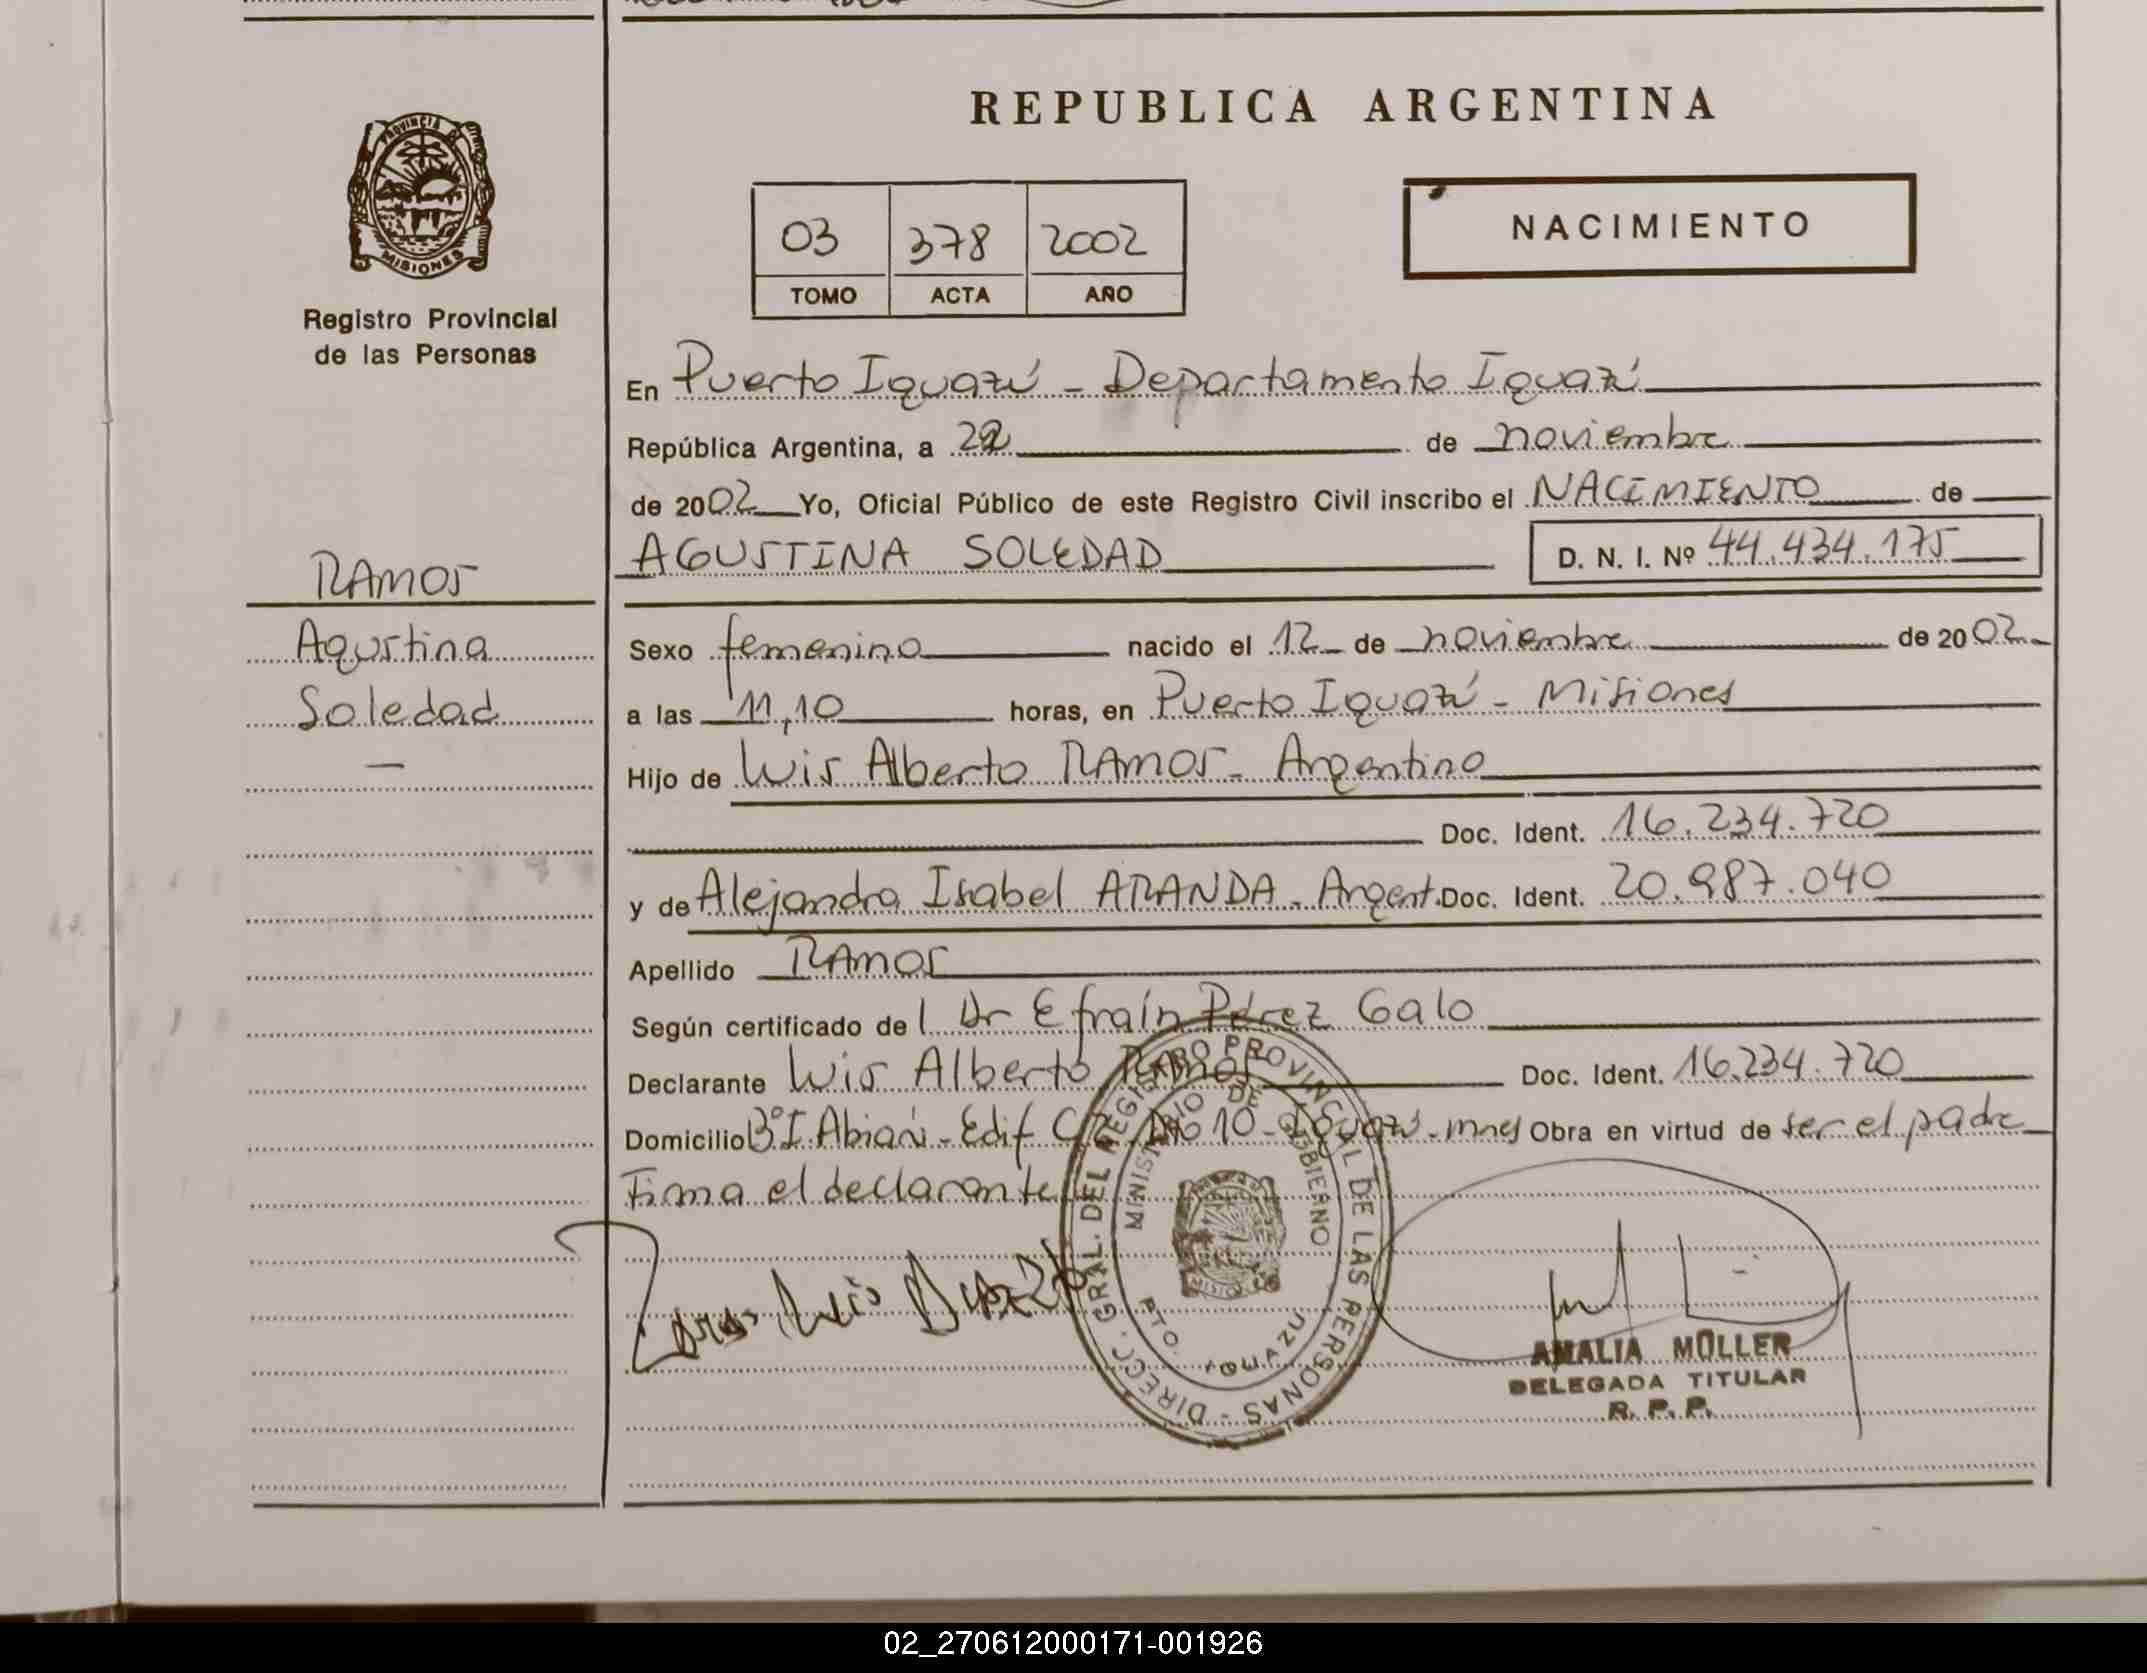 REPUBLICA ARGENTINA
PROVINCIA DE
MISIONES
Registro Provincial
de las Personas
03 378 2002
TOMO ACTA AÑO
NACIMIENTO
En Puerto Iguazú - Departamento Iguazú
República Argentina, a 22 de noviembre
de 2002 Yo, Oficial Público de este Registro Civil inscribo el NACIMIENTO de
AGUSTINA SOLEDAD D. N. I. Nº 44.434.175
RAMOS
Agustina
Soledad
Sexo femenino nacido el 12 de noviembre de 2002
a las 11,10 horas, en Puerto Iguazú - Misiones
Hijo de Luis Alberto RAMOS - Argentino
Doc. Ident. 16.234.720
y de Alejandra Isabel ARANDA - Argent. Doc. Ident. 20.987.040
Apellido RAMOS
Según certificado del Dr Efraín Pérez Galo
Declarante Luis Alberto RAMOS Doc. Ident. 16.234.720
Domicilio Bº I. Abiari - Edif 10 - Iguazú - mnes Obra en virtud de ser el padre
Firma el declarante
DIRECC. GRAL. DEL REGISTRO PROVINCIAL DE LAS PERSONAS -
MINISTERIO DE GOBIERNO
PTO. IGUAZU
MISIONES
Ramos Luis
AMALIA MÜLLER
DELEGADA TITULAR
R. P. P.
02_270612000171-001926